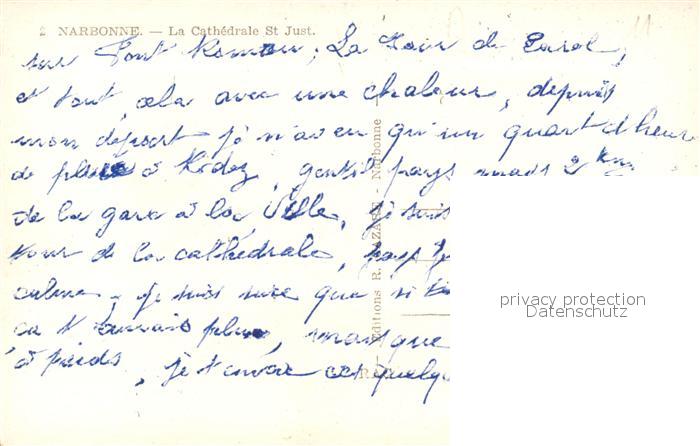 2 NARBONNE. — La Cathédrale St Just.
sur Pont Romain, La Tour de Carol,
et tout cela avec une chaleur, depuis
mon depart je n'ai eu qu'un quart d'heure
de pluie à Rodez, gentil pays mais 2 km
de la gare à la Ville, je suis
tour de la cathédrale, pays
calme, je suis sure que si
ça t'aurais plu, mais que
à pieds, je t'envoie ces quelq
Editions R. - Narbonne
privacy protection
Datenschutz